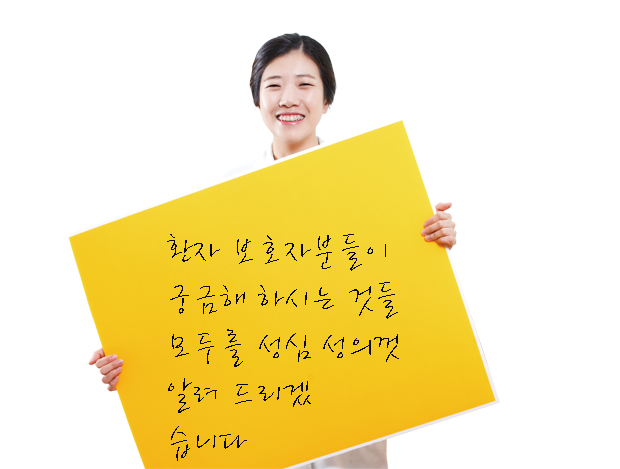 환자 보호자분들이
궁금해 하시는 것들
모두를 성심 성의껏
알려 드리겠
습니다